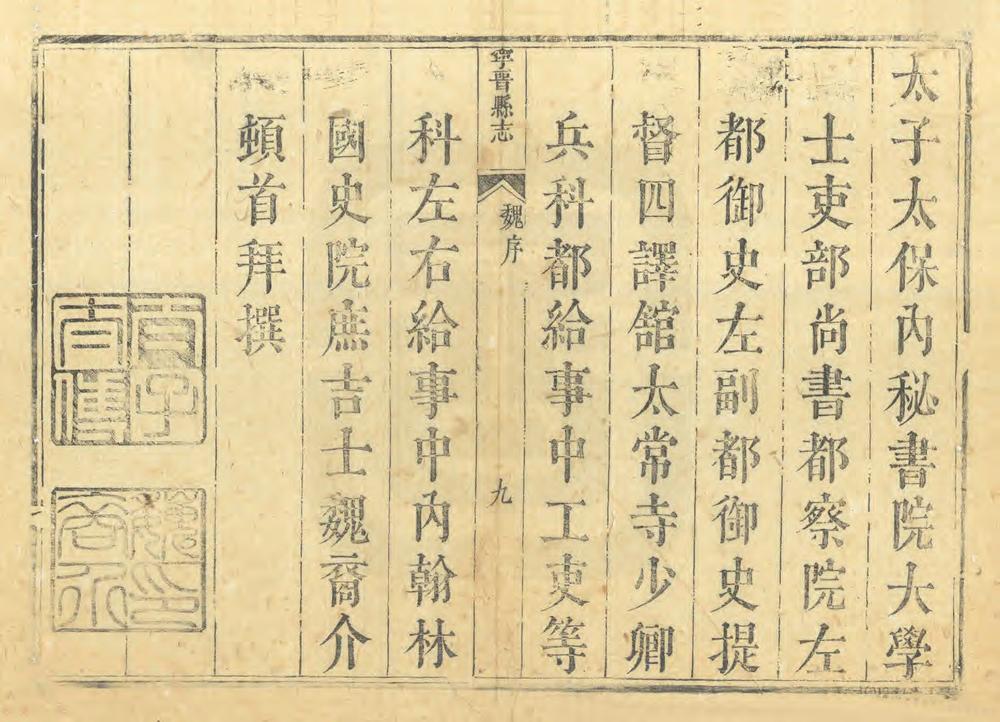 太子太保內秘書院大學
士吏部尚書都察院左
都御史左副都御史提
督四譯舘太常寺少卿
兵科都給事中工吏等
寧晉縣志 魏序 九
科左右給事中內翰林
國史院庶吉士魏裔介
頓首拜撰
太子太保
魏裔介印